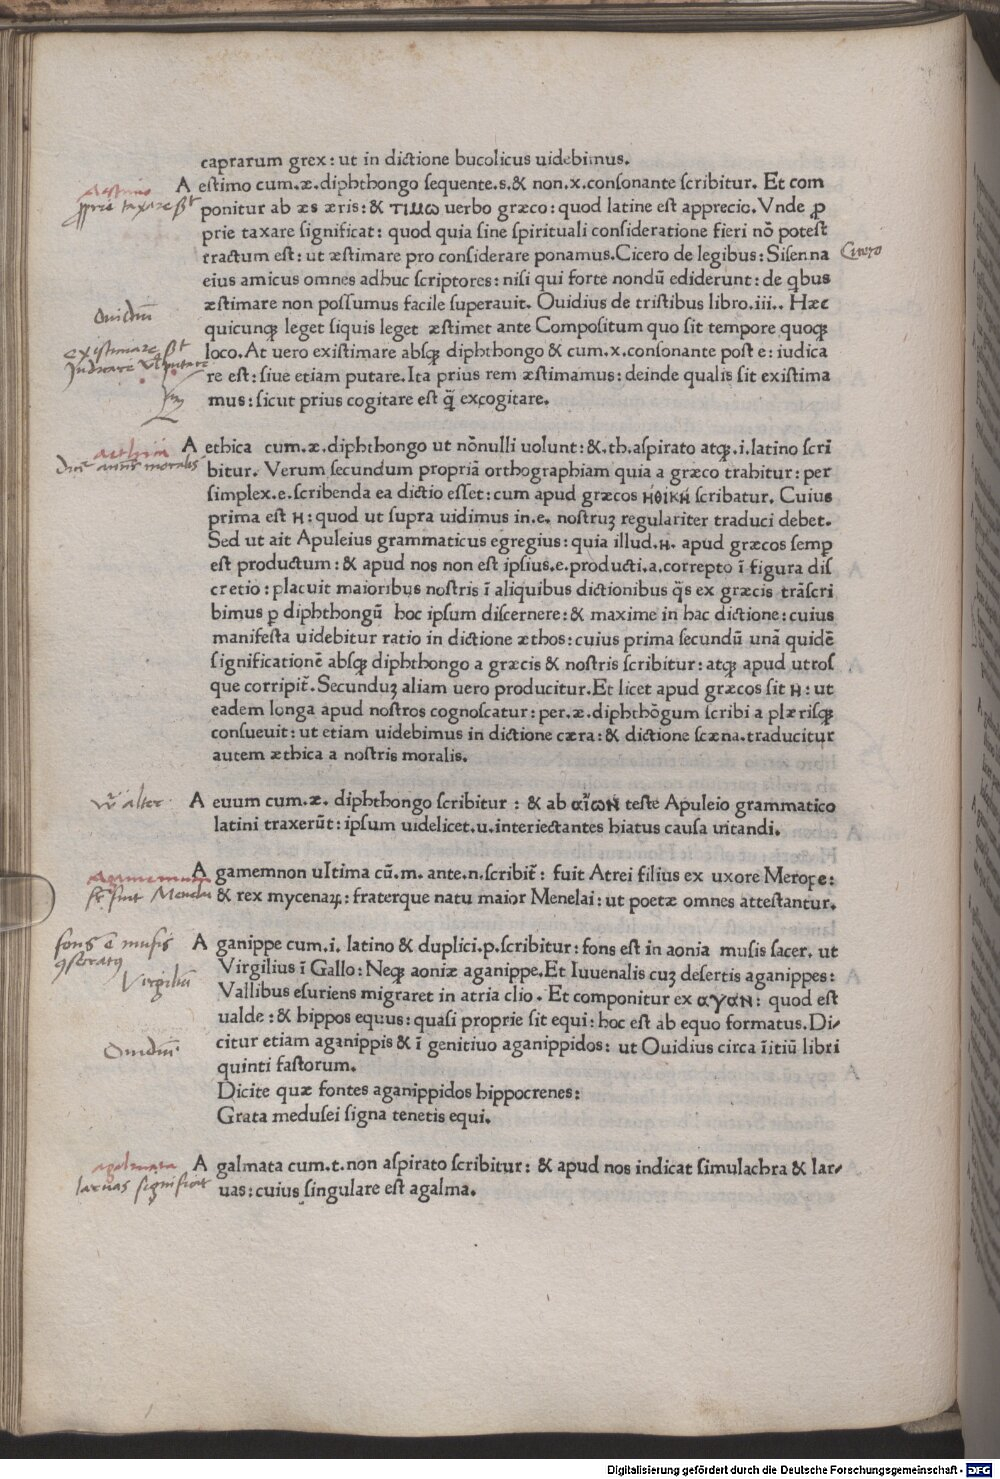 caprarum grex: ut in dictione bucolicus uidebimus.
A estimo cum.æ.diphthongo sequente.s.& non.x.consonante scribitur. Et com
ponitur ab æs æris: & τιμω uerbo græco: quod latine est apprecio. Vnde ꝓ
prie taxare significat: quod quia sine spirituali consideratione fieri nō potest
tractum est: ut æstimare pro considerare ponamus. Cicero de legibus: Sisenna
eius amicus omnes adhuc scriptores: nisi qui forte nondū ediderunt: de qbus
æstimare non possumus facile superauit. Ouidius de tristibus libro.iii.. Hæc
quicunqꝫ leget siquis leget æstimet ante Compositum quo sit tempore quoqꝫ
loco. At uero existimare absqꝫ diphthongo & cum.x.consonante post e: iudica
re est: siue etiam putare. Ita prius rem æstimamus: deinde qualis sit existima
mus: sicut prius cogitare est q̄ excogitare.
A ethica cum.æ.diphthongo ut nōnulli uolunt: &.th.aspirato atqꝫ.i.latino scri
bitur. Verum secundum propriā orthographiam quia a græco trahitur: per
simplex.e.scribenda ea dictio esset: cum apud græcos ηθικη scribatur. Cuius
prima est η: quod ut supra uidimus in.e. nostruꝫ regulariter traduci debet.
Sed ut ait Apuleius grammaticus egregius: quia illud.η. apud græcos semp
est productum: & apud nos non est ipsius.e.producti.a.correpto ī figura dis
cretio: placuit maioribus nostris ī aliquibus dictionibus q̄s ex græcis trāscri
bimus ꝑ diphthongū hoc ipsum discernere: & maxime in hac dictione: cuius
manifesta uidebitur ratio in dictione æthos: cuius prima secundū unā quidē
significationē absqꝫ diphthongo a græcis & nostris scribitur: atqꝫ apud utros
que corripit̄. Secunduꝫ aliam uero producitur. Et licet apud græcos sit η: ut
eadem longa apud nostros cognoscatur: per.æ.diphthōgum scribi a plærisqꝫ
consueuit: ut etiam uidebimus in dictione cæra: & dictione scæna.traducitur
autem æthica a nostris moralis.
A euum cum.æ. diphthongo scribitur : & ab αἰων teste Apuleio grammatico
latini traxerūt: ipsum uidelicet.u.interiectantes hiatus causa uitandi.
A gamemnon ultima cū.m. ante.n.scribit̄: fuit Atrei filius ex uxore Merope:
& rex mycenaꝝ: fraterque natu maior Menelai: ut poetæ omnes attestantur.
A ganippe cum.i. latino & duplici.p.scribitur: fons est in aonia musis sacer. ut
Virgilius ī Gallo: Neqꝫ aoniæ aganippe. Et Iuuenalis cuꝫ desertis aganippes:
Vallibus esuriens migraret in atria clio. Et componitur ex αγαν: quod est
ualde: & hippos equus: quasi proprie sit equi: hoc est ab equo formatus. Di-
citur etiam aganippis & ī genitiuo aganippidos: ut Ouidius circa īitiū libri
quinti fastorum.
Dicite quæ fontes aganippidos hippocrenes:
Grata medusei signa tenetis equi.
A galmata cum.t.non aspirato scribitur: & apud nos indicat simulachra & lar-
uas: cuius singulare est agalma.
Cicero
Ouidiū
Virgiliū
Ouidiū
agalmata
laruas significat
Digitalisierung gefördert durch die Deutsche Forschungsgemeinschaft - DFG